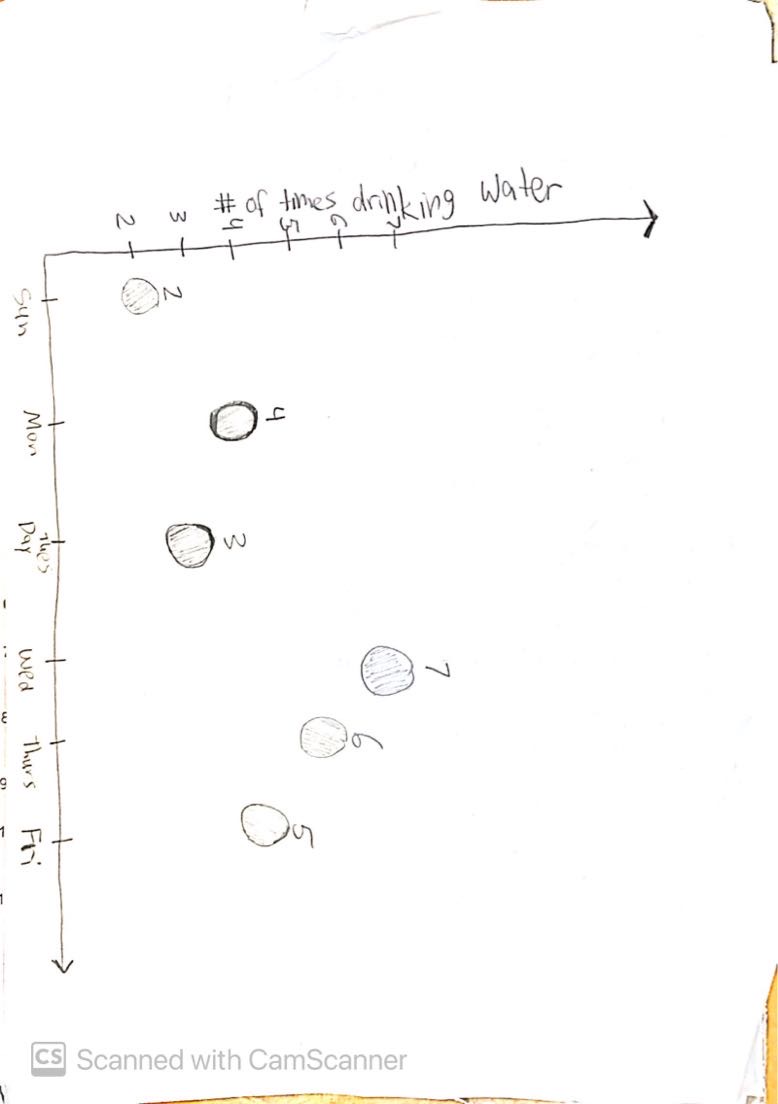 # of times drinking water
2
3
4
5
6
7
Sun
2
Mon
4
Tues
Day
3
Wed
7
Thurs
6
Fri
5
CS Scanned with CamScanner